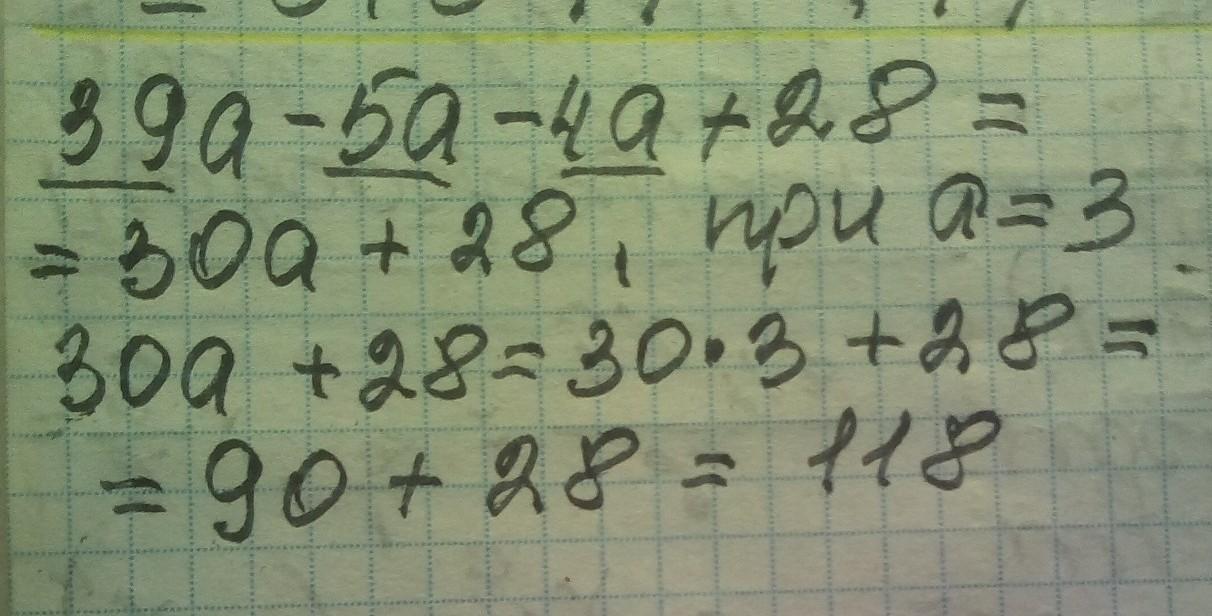 39а - 5а - 4а + 28 =
= 30а + 28, при а = 3
30а + 28 = 30 · 3 + 28 =
= 90 + 28 = 118